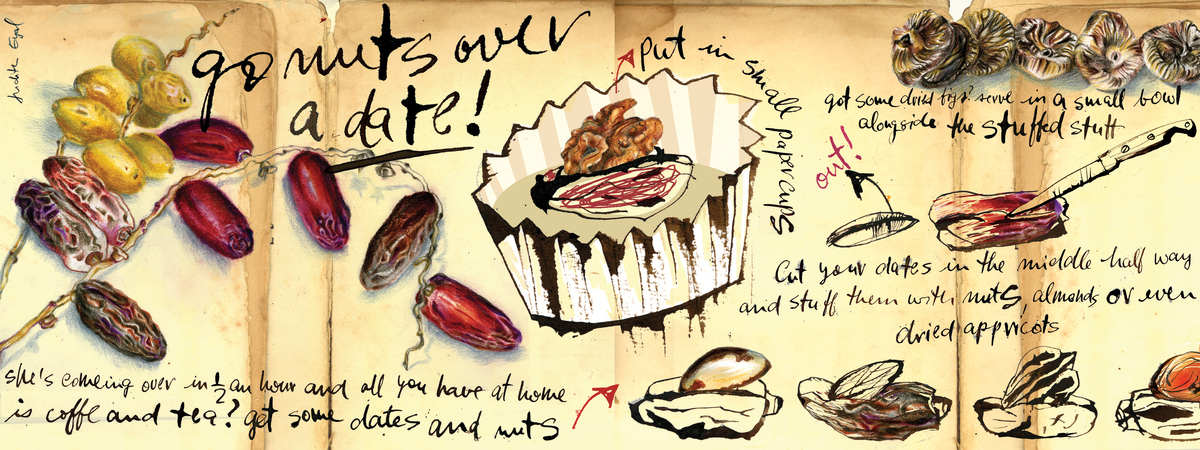 Judith Eyal
go nuts over
a date!
put in small papercups
got some dried figs? serve in a small bowl
alongside the stuffed stuff
out!
Cut your dates in the middle half way
and stuff them with nuts, almonds or even
dried appricots
she's comeing over in 1/2 an hour and all you have at home
is coffe and tea? get some dates and nuts